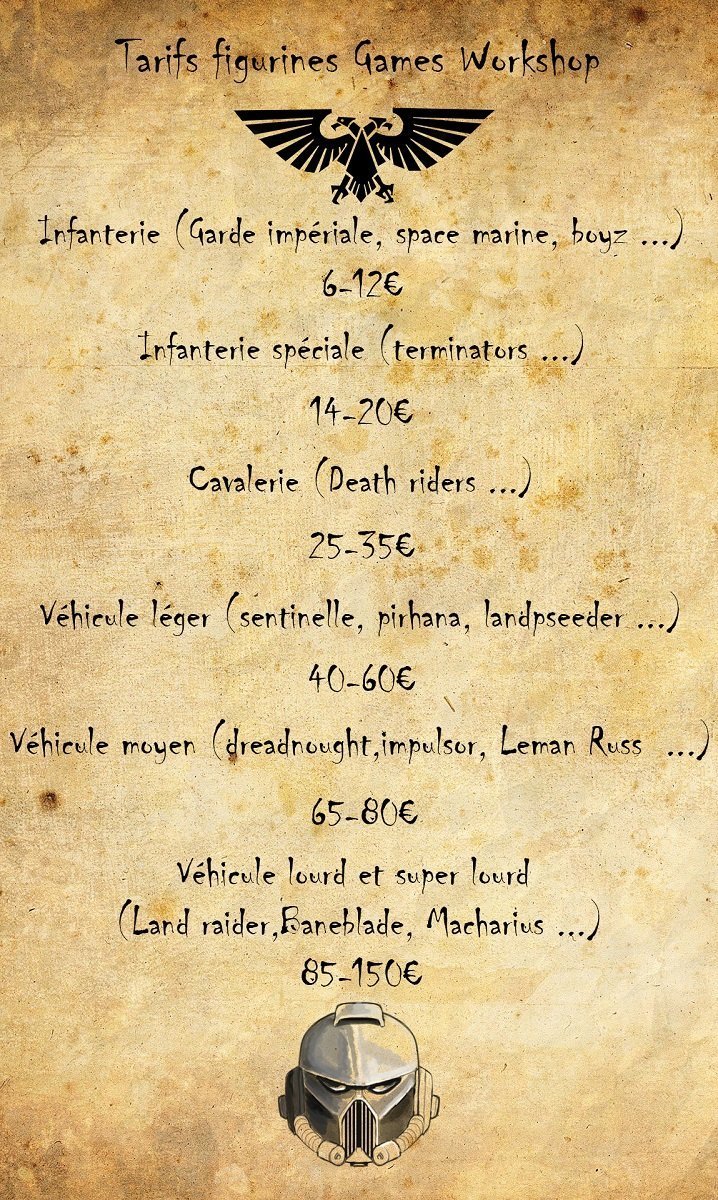 Tarifs figurines Games Workshop
Infanterie (Garde impériale, space marine, boyz ...)
6-12€
Infanterie spéciale (terminators ...)
14-20€
Cavalerie (Death riders ...)
25-35€
Véhicule léger (sentinelle, pirhana, landpseeder ...)
40-60€
Véhicule moyen (dreadnought,impulsor, Leman Russ ...)
65-80€
Véhicule lourd et super lourd
(Land raider,Baneblade, Macharius ...)
85-150€